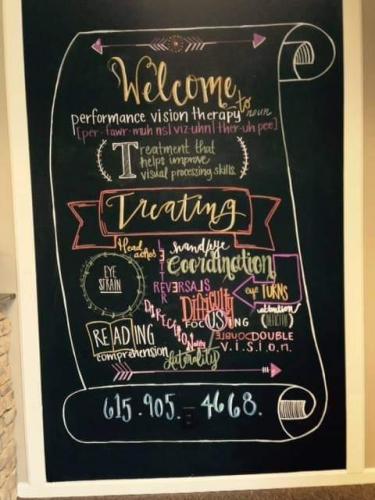 Welcome
to
performance vision therapy noun
[per-fawr-muh ns| viz-uhn| ther-uh pee]
Treatment that
helps improve
visual processing skills.
Treating
Head aches
hand/eye
Coordination
EYE
STRAIN
LETTER
REVERSALS
eye TURNS
Difficulty
FOCUSING
attention
DEFICIT
DIRECTIONALITY
DOUBLE DOUBLE
Vision.
READING
comprehension
laterality
615.905.4668.